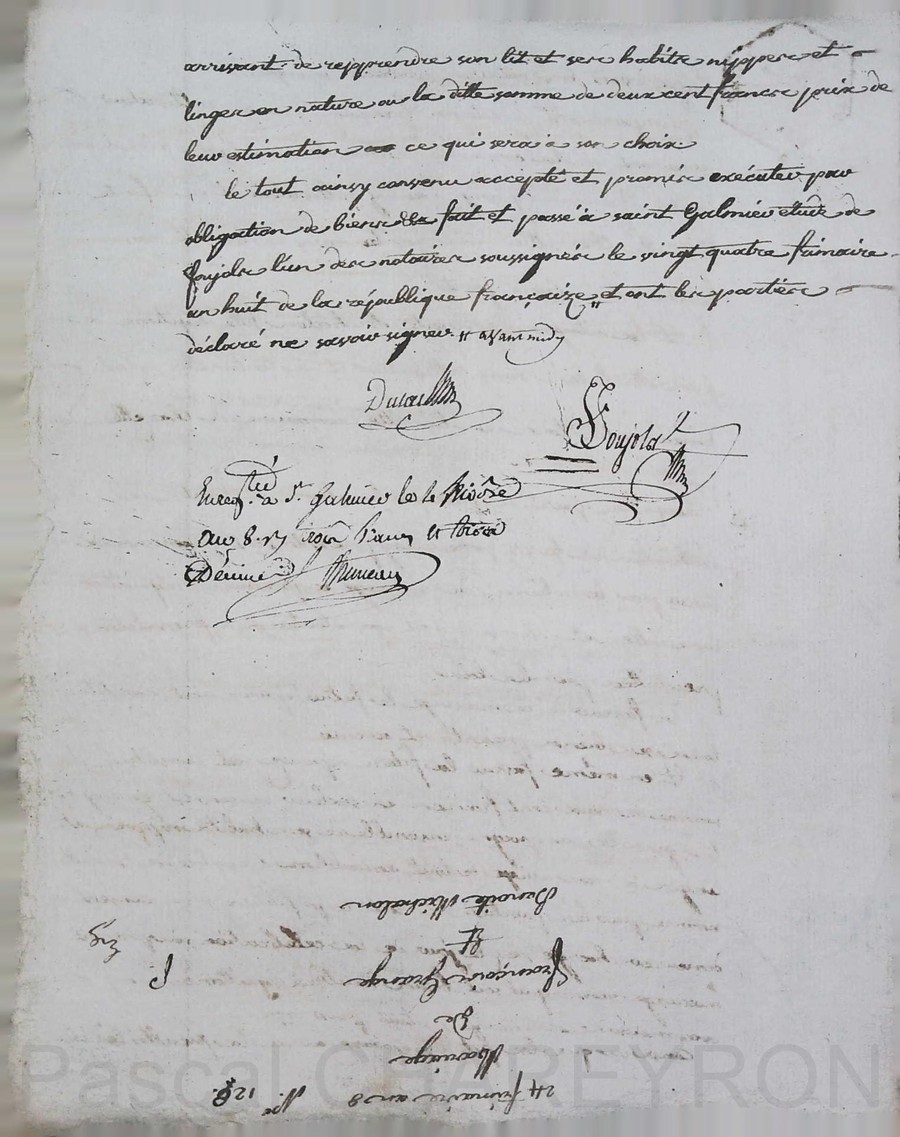 arrivant de repprendre son lit et ses habits nippes et
linges en nature ou la ditte somme de deux cent francs prix de
leur estimation ce qui sera a son choix
le tout ainsy convenu accepté et promis exécuter par
obligation de biens fait et passé a saint Galmier étude de
foujols l'un des notaires soussignés le vingt quatre frimaire
an huit de la république françaize " et ont les parties
déclaré ne savoir signer " avant midy
Ducas
Foujols
Enregtré a St Galmier le 4 Nivôse
an 8. trois francs et trois
Décimes
24 frimaire an 8 No 128.
Mariage
De
françois Grange
Et
Benoite Michalon
Eng
Pascal CHAREYRON